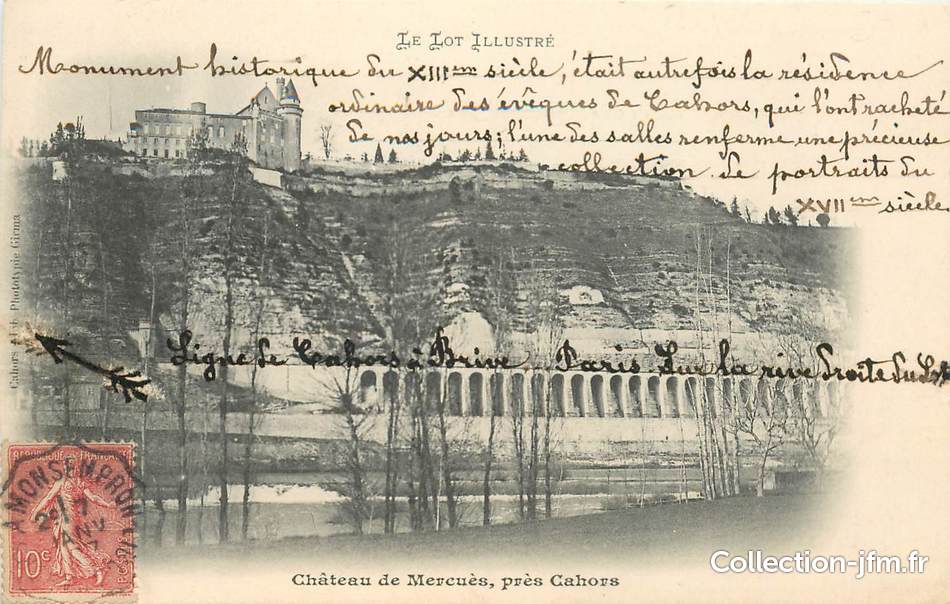 LE LOT ILLUSTRÉ
Monument historique du XIIIème siècle, était autrefois la résidence
ordinaire des évêques de Cahors, qui l'ont racheté
de nos jours; l'une des salles renferme une précieuse
collection de portraits du
XVIIème siècle.
Cahors Phototypie Girma
Ligne de Cahors à Brive Paris sur la rive droite du Lot
REPUBLIQUE FRANÇAISE
MONSEMPRON
10c
Château de Mercuès, près Cahors
Collection-jfm.fr